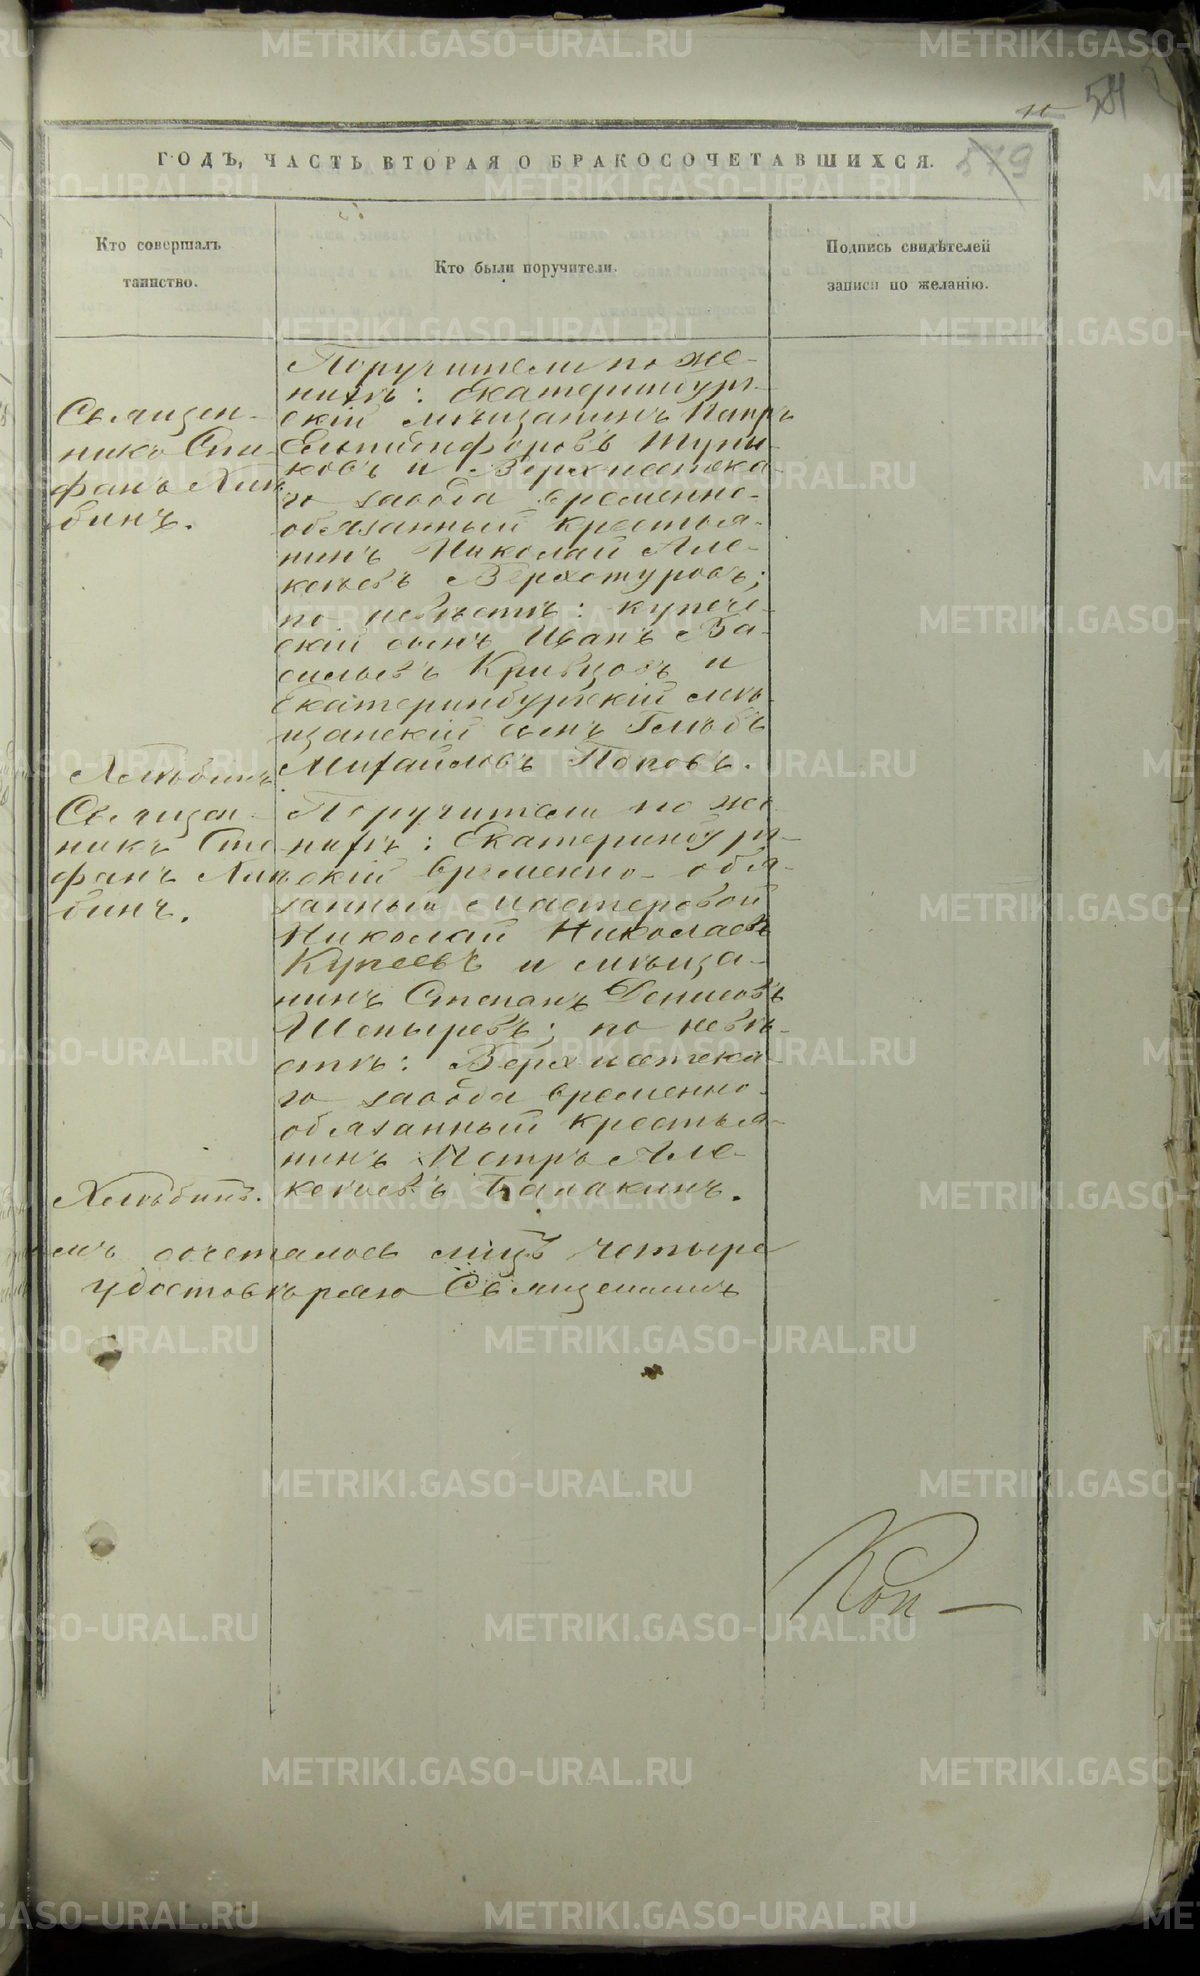 11 581
ГОДЪ, ЧАСТЬ ВТОРАЯ О БРАКОСОЧЕТАВШИХСЯ.
579
Кто совершалъ
таинство.
Кто были поручители.
Подпись свидѣтелей
записи по желанію.
Священ-
никъ Сте-
фанъ Хлѣ-
бинъ.
Хлѣбинъ
Поручители по же-
нихѣ: Екатеринбург-
скій мѣщанинъ Петръ
Елпидифоровъ
ковъ и Верхъисетска-
го завода временно-
обязанный крестья-
нинъ Николай Але-
ксѣевъ Верхотуровъ;
по невѣстѣ: купече-
скій сынъ Иванъ Ва-
сильевъ Кривцовъ и
Екатеринбургскій мѣ-
щанскій сынъ Глѣбъ
Михайловъ Поповъ.
Священ-
никъ Сте-
фанъ Хлѣ-
бинъ.
Хлѣбинъ.
Поручители по же-
нихѣ: Екатеринбург-
скій временно-обя-
занный мастеровой
Николай Николаевъ
и мѣща-
нинъ Степанъ Денисовъ
по невѣ-
стѣ: Верхъисетска-
го завода временно-
обязанный крестья-
нинъ Петръ Але-
ксѣевъ Балакинъ.
мъ сочеталось лицъ четыре
удостовѣряю Священникъ
Коп—
METRIKI.GASO-URAL.RU